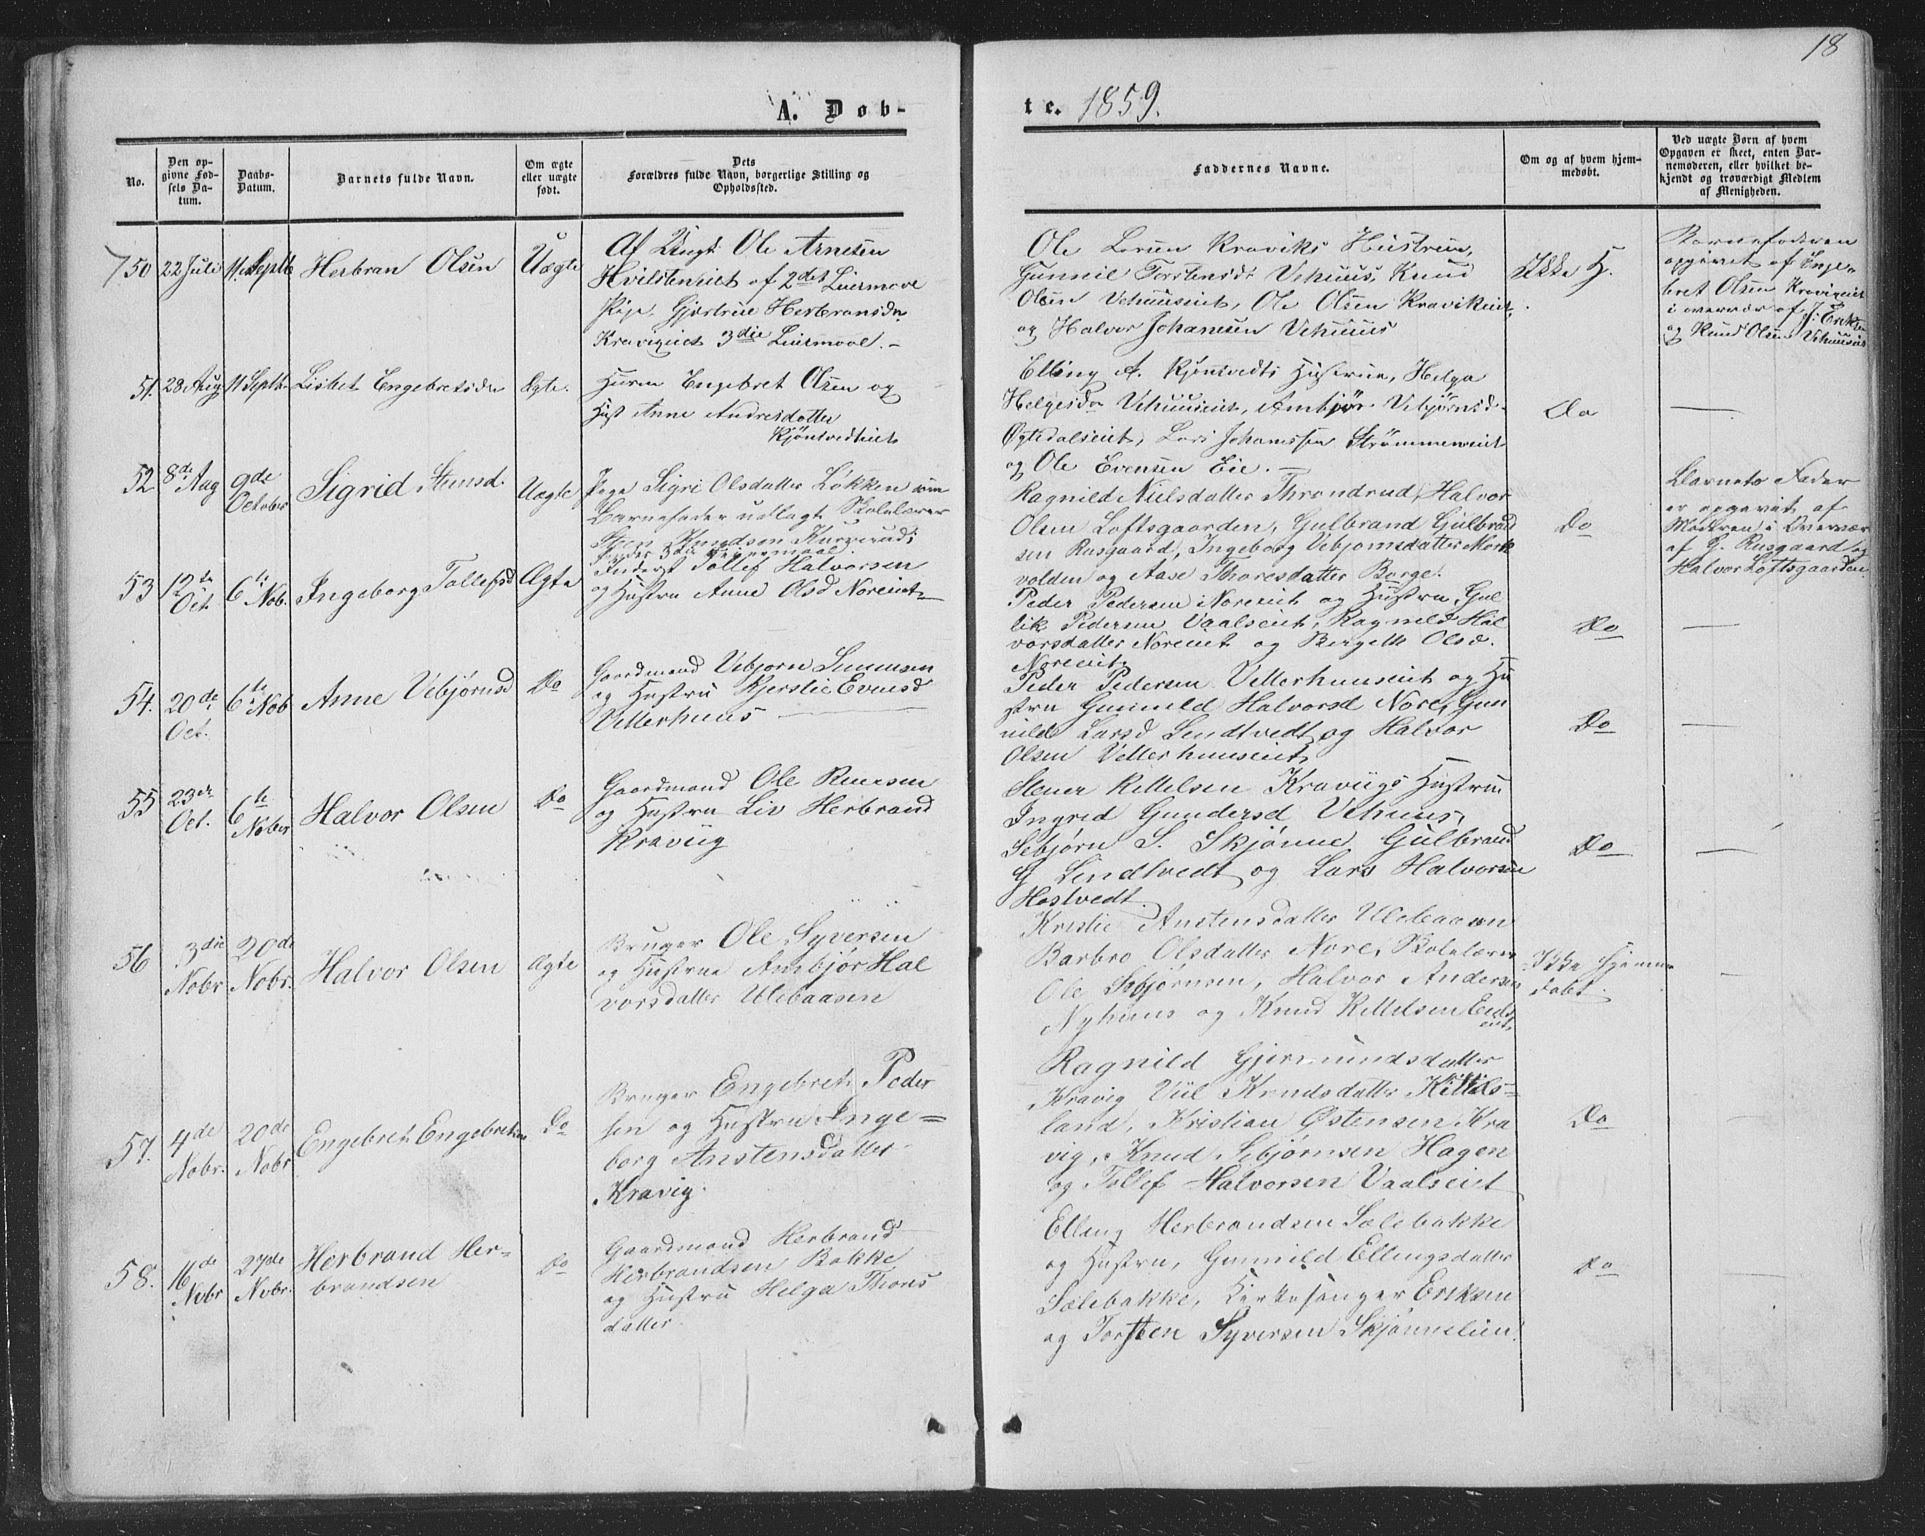 18
A. Døb-
te. 1859.
No.
Den op-
givne Fød-
sels Da-
tum.
Daabs-
Datum.
Barnets fulde Navn.
Om ægte
eller uægte
født.
Dets
Forældres fulde Navn, borgerlige Stilling og
Opholdssted.
Faddernes Navne.
Om og af hvem hjem-
medøbt.
Ved uægte Børn af hvem
Opgaven er skeet, enten Bar-
nemoderen, eller hvilket be-
kjendt og troværdigt Medlem
af Menigheden.
50 22 Juli 11. Septb Herbran Olsen Uægte
Af Ungk. Ole Arnesen
Hvilsteneiet af 2det Leiermaal
Pige. Gjertrue Herbransdr
Kravigeiet 3die Leiermaal. -
Ole Kraviks Hustrue,
Gunnil Torstensdr Vehuus, Knud
Olsen Vehuuseiet, Ole Olsen Kravikeiet,
og Halvor Johanesen Vehuus
Ikke H.
Barnefaderen
opgivet af Enge-
bret Olsen Kravigeiet
i overvær af J: Eriksen
og Knud Olsen Vehuuseie
51. 28 Aug 11 Septb. Lisbet Engebretsdr Ægte.
Huren Engebret Olsen og
Hust Anne Andresdatter
Kjønsvedteiet
Elling A. Kjønsvedts Hustrue, Helga
Helgesdr Vehuuseiet, Ambjør Vebjørnsd.
Øgtedalseiet, Lars Johannsen Strømmeneiet
og Ole Evensen Eie. —
Do
52 8de Aug 9de October Sigrid Stensd. Uægte
Pige Sigri Olsdatter Løkken som
Barnefader udlagt Skolelærer
Sten Knudsen Kurverud;
Begges 3die Leiermaal.
Ragnild Nielsdatter Throndrud, Halvor
Olsen Loftsgaarden, Gulbrand Gulbrand
sen Rusgaard, Ingeborg Vebjornsdatter Mork
volden og Aase Thoresdatter Berge.
Do
Barnets Fader
er opgivet af
Modren i Overvær
af G. Rusgaard og
Halvor Loftsgaarden.
53 12te Oct. 6te Nob. Ingeborg Tollefsd Ægte
Inderst Tollef Halvorsen
og Hustru Anne Olsd Noreeiet
Peder Pedersen Noreeiet og Hustru, Gul
lik Pedersen Vaalseiet, Ragnild Hal
vorsdatter Noreeiet og Bergette Olsd.
Noreeiet
Do
54. 20de Oct. 6te Nob Anne Vebjørnsd Do
Gaardmand Vebjorn Simensen
og Hustru Kjerstie Evensd
Vetterhuus
Peder Pedersen Vetterhuuseiet og Hu
stru Gunnild Halvorsd Nore, Gun
nild Larsd Lindtvedt og Halvor
Olsen Vetterhuuseiet
Do
55 23de Oct. 6te Nober Halvor Olsen Do
Gaardmand Ole Reiersen
og Hustru Liv Herbrand
Kraviig
Stener Kittelsen Kraviigs Hustru
Ingrid Gundersd Vehuus,
Sebjørn S. Skjønne Gulbrand
G Lindtvedt og Lars Halvorsen
Høstvedt.
Do
56 3die Nobr 20de Nobr. Halvor Olsen Ægte
Bruger Ole Syversen
og Hustrue Ambjør Hal
vorsdatter Ulebaasen
Kristie Anstensdatter Ulebaasen
Barbro Olsdatter Nore, Skolelærer
Ole Sebjørnsen, Halvor Andersen
Nyhuus og Knud Kittelsen Eids
eiet
Ikke hjemme
døbt.
57. 4de Nobr. 20de Nobr Engebret Engebretsen Do
Bruger Engebret Peder
sen og Hustru Inge=
borg Anstensdatter
Kravig.
Ragnild Gjermundsdatter
Kravig Viil Knudsdatter Kittils=
land, Kristian Østensen Kra
vig, Knud Sebjørnsen Hagen
og Tollef Halvorsen Vaalseiet
Do
58. 16de Nobr 27de Nobr. Herbrand Her-
brandsen Do
Gaardmand Herbrand
Herbrandsen Bakke
og Hustru Helga Thores
datter
Elling Herbrandsen Solebakke
og Hustru, Gunnild Ellingsdatter
Solebakke, Kirkesanger Eriksen
og Torsten Syversen Skjønnelien.
Do